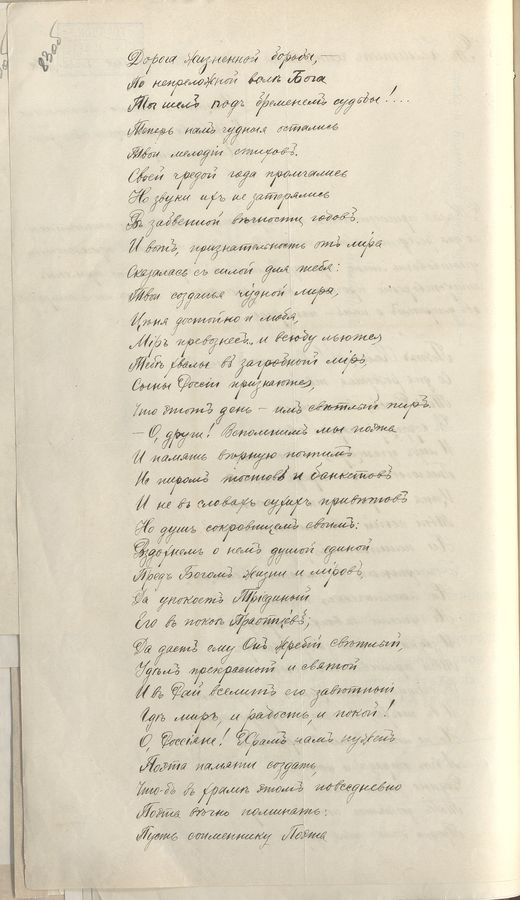 83об
Дорога жизненной борьбы,
По непреложной воле Бога
Ты шелъ подъ бременемъ судьбы!...
Теперь намъ чудныя остались
Твои мелодіи стиховъ.
Своей чредой года промчались
Но звуки ихъ не затерялись
Въ забвенной вѣчности годовъ.
И вотъ, признательность отъ міра
Сказалась съ силой для тебя:
Твои созданья чудной лиры,
Цѣня достойно и любя,
Міръ превознесъ.. и всюду льются
Тебѣ хвалы въ загробный міръ,
Сыны Россіи признаются,
Что этотъ день – имъ свѣтлый пиръ.
– О, други! Вспомнимъ мы поэта
И память вѣрную почтимъ
Не пиромъ тостовъ и банкетовъ
И не въ словахъ сухихъ привѣтовъ
Но душъ сокровищемъ своимъ:
Вздохнемъ о немъ душой единой
Предъ Богомъ жизни и міровъ,
Да упокоитъ Тріединый
Его въ покоѣ Праотцевъ;
Да дастъ ему Онъ жребій свѣтлый,
Удѣлъ прекрасный и святой
И въ Рай вселитъ его завѣтный
Гдѣ миръ, и радость, и покой!
О, Россіяне! Храмъ намъ нужно
Поэта памяти создать,
Что-бъ въ храмѣ этомъ повседневно
Поэта вѣчно поминать:
Пусть соименнику Поэта